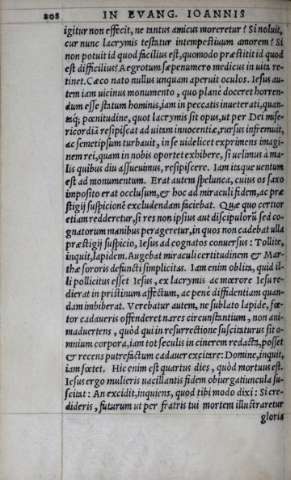 208 IN EVANG. IOANNIS
igitur non effecit, ne tantus amicus moreretur? Si noluit,
cur nunc lacrymis testatur intempestiuum amorem? Si
non potuit id quod facilius est, quomodo præstitit id quod
est difficilius? Aegrotum sæpenumero medicus in uita re-
tinet. Cæco nato nullus unquam aperuit oculos. Iesus au-
tem iam uicinus monumento, quo plane doceret horren-
dum esse statum hominis, iam in peccatis inueterati, quan-
taq; pœnitudine, quot lacrymis sit opus, ut per Dei mise-
ricordiã resipiscat ad uitam innocentiæ, rursus infremuit,
ac semetipsum turbauit, in se uidelicet exprimens imagi-
nem rei, quam in nobis oportet exhibere, si uelimus à ma-
lis quibus diu assueuimus, resipiscere. Iam itaque uentum
est ad monumentum. Erat autem spelunca, cuius os saxo
imposito erat occlusum, & hoc ad miraculi fidem, ac præ
stigij suspicionẽ excludendam faciebat. Quæ quo certior
etiam redderetur, si res non ipsius aut discipulorũ sed co-
gnatorum manibus perageretur, in quos non cadebat ulla
præstigij suspicio, Iesus ad cognatos conuersus: Tollite,
inquit, lapidem. Augebat miraculi certitudinem & Mar-
thæ sororis defuncti simplicitas. Iam enim oblita, quid il-
li pollicitus esset Iesus, ex lacrymis ac mœrore Iesu re-
dierat in pristinum affectum, ac penè diffidentiam quan-
dam imbiberat. Verebatur autem, ne sublato lapide, fœ-
tor cadaueris offenderet nares circunstantium, non ani-
maduertens, quòd qui in resurrectione suscitaturus sit o-
mnium corpora, iam tot seculis in cinerem redacta, posset
& recens putrefactum cadauer excitare: Domine, inquit,
iam fœtet. Hic enim est quartus dies, quòd mortuus est.
Iesus ergo mulieris uacillantis fidem obiurgatiuncula su-
scitat: An excidit, inquiens, quod tibi modo dixi: Si cre-
dideris, futurum ut per fratris tui mortem illustraretur
gloria